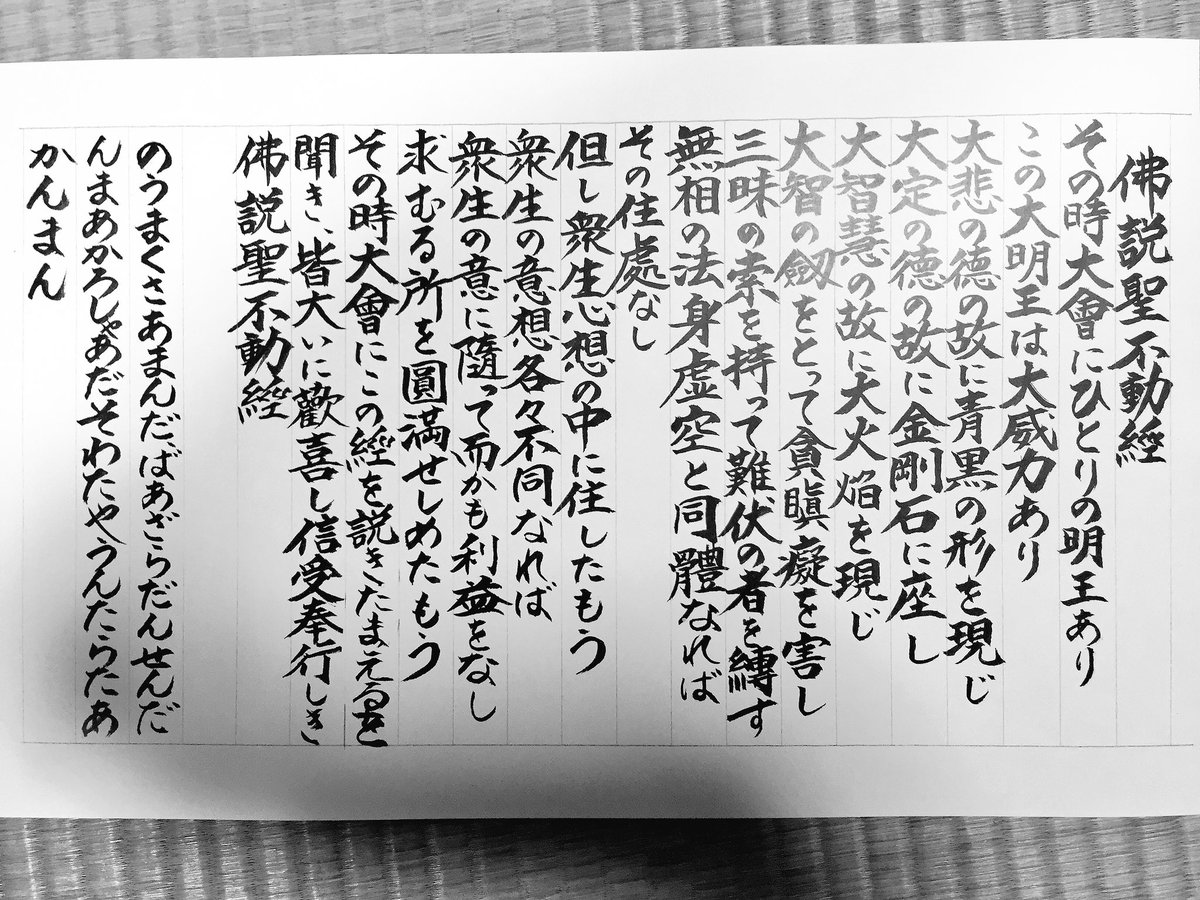 佛説聖不動經
その時大會にひとりの明王あり
この大明王は大威力あり
大悲の德の故に青黒の形を現じ
大定の德の故に金剛石に座し
大智慧の故に大火焔を現じ
大智の劔をとって貪瞋癡を害し
三昧の索を持って難伏の者を縛す
無相の法身虚空と同體なれば
その住處なし
但し衆生心想の中に住したもう
衆生の意想各々不同なれば
衆生の意に隨って而かも利益をなし
求むる所を圓満せしめたもう
その時大會にこの經を説きたまえるを
聞き、皆大いに歡喜し信受奉行しき
佛説聖不動經
のうまくさあまんだ、ばあざらだんせんだ
んまあかろしゃあだそわたやうんたらたあ
かんまん